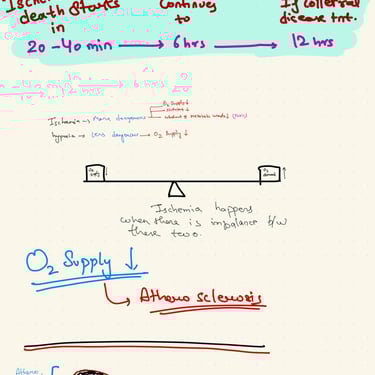 Ischem
death starts
in
Continues
to
If collateral
disease tnt.
20-40 min → 6 hrs → 12 hrs
O₂ Supply ↓
Ischemia → More dangerous
hypoxia → Less dangerous → O₂ Supply ↓
O₂
↓
O₂
demand
↑
Ischemia happens
when there is imbalance b/w
these two.
O₂ Supply ↓
→ Athero sclerosis
Athero.